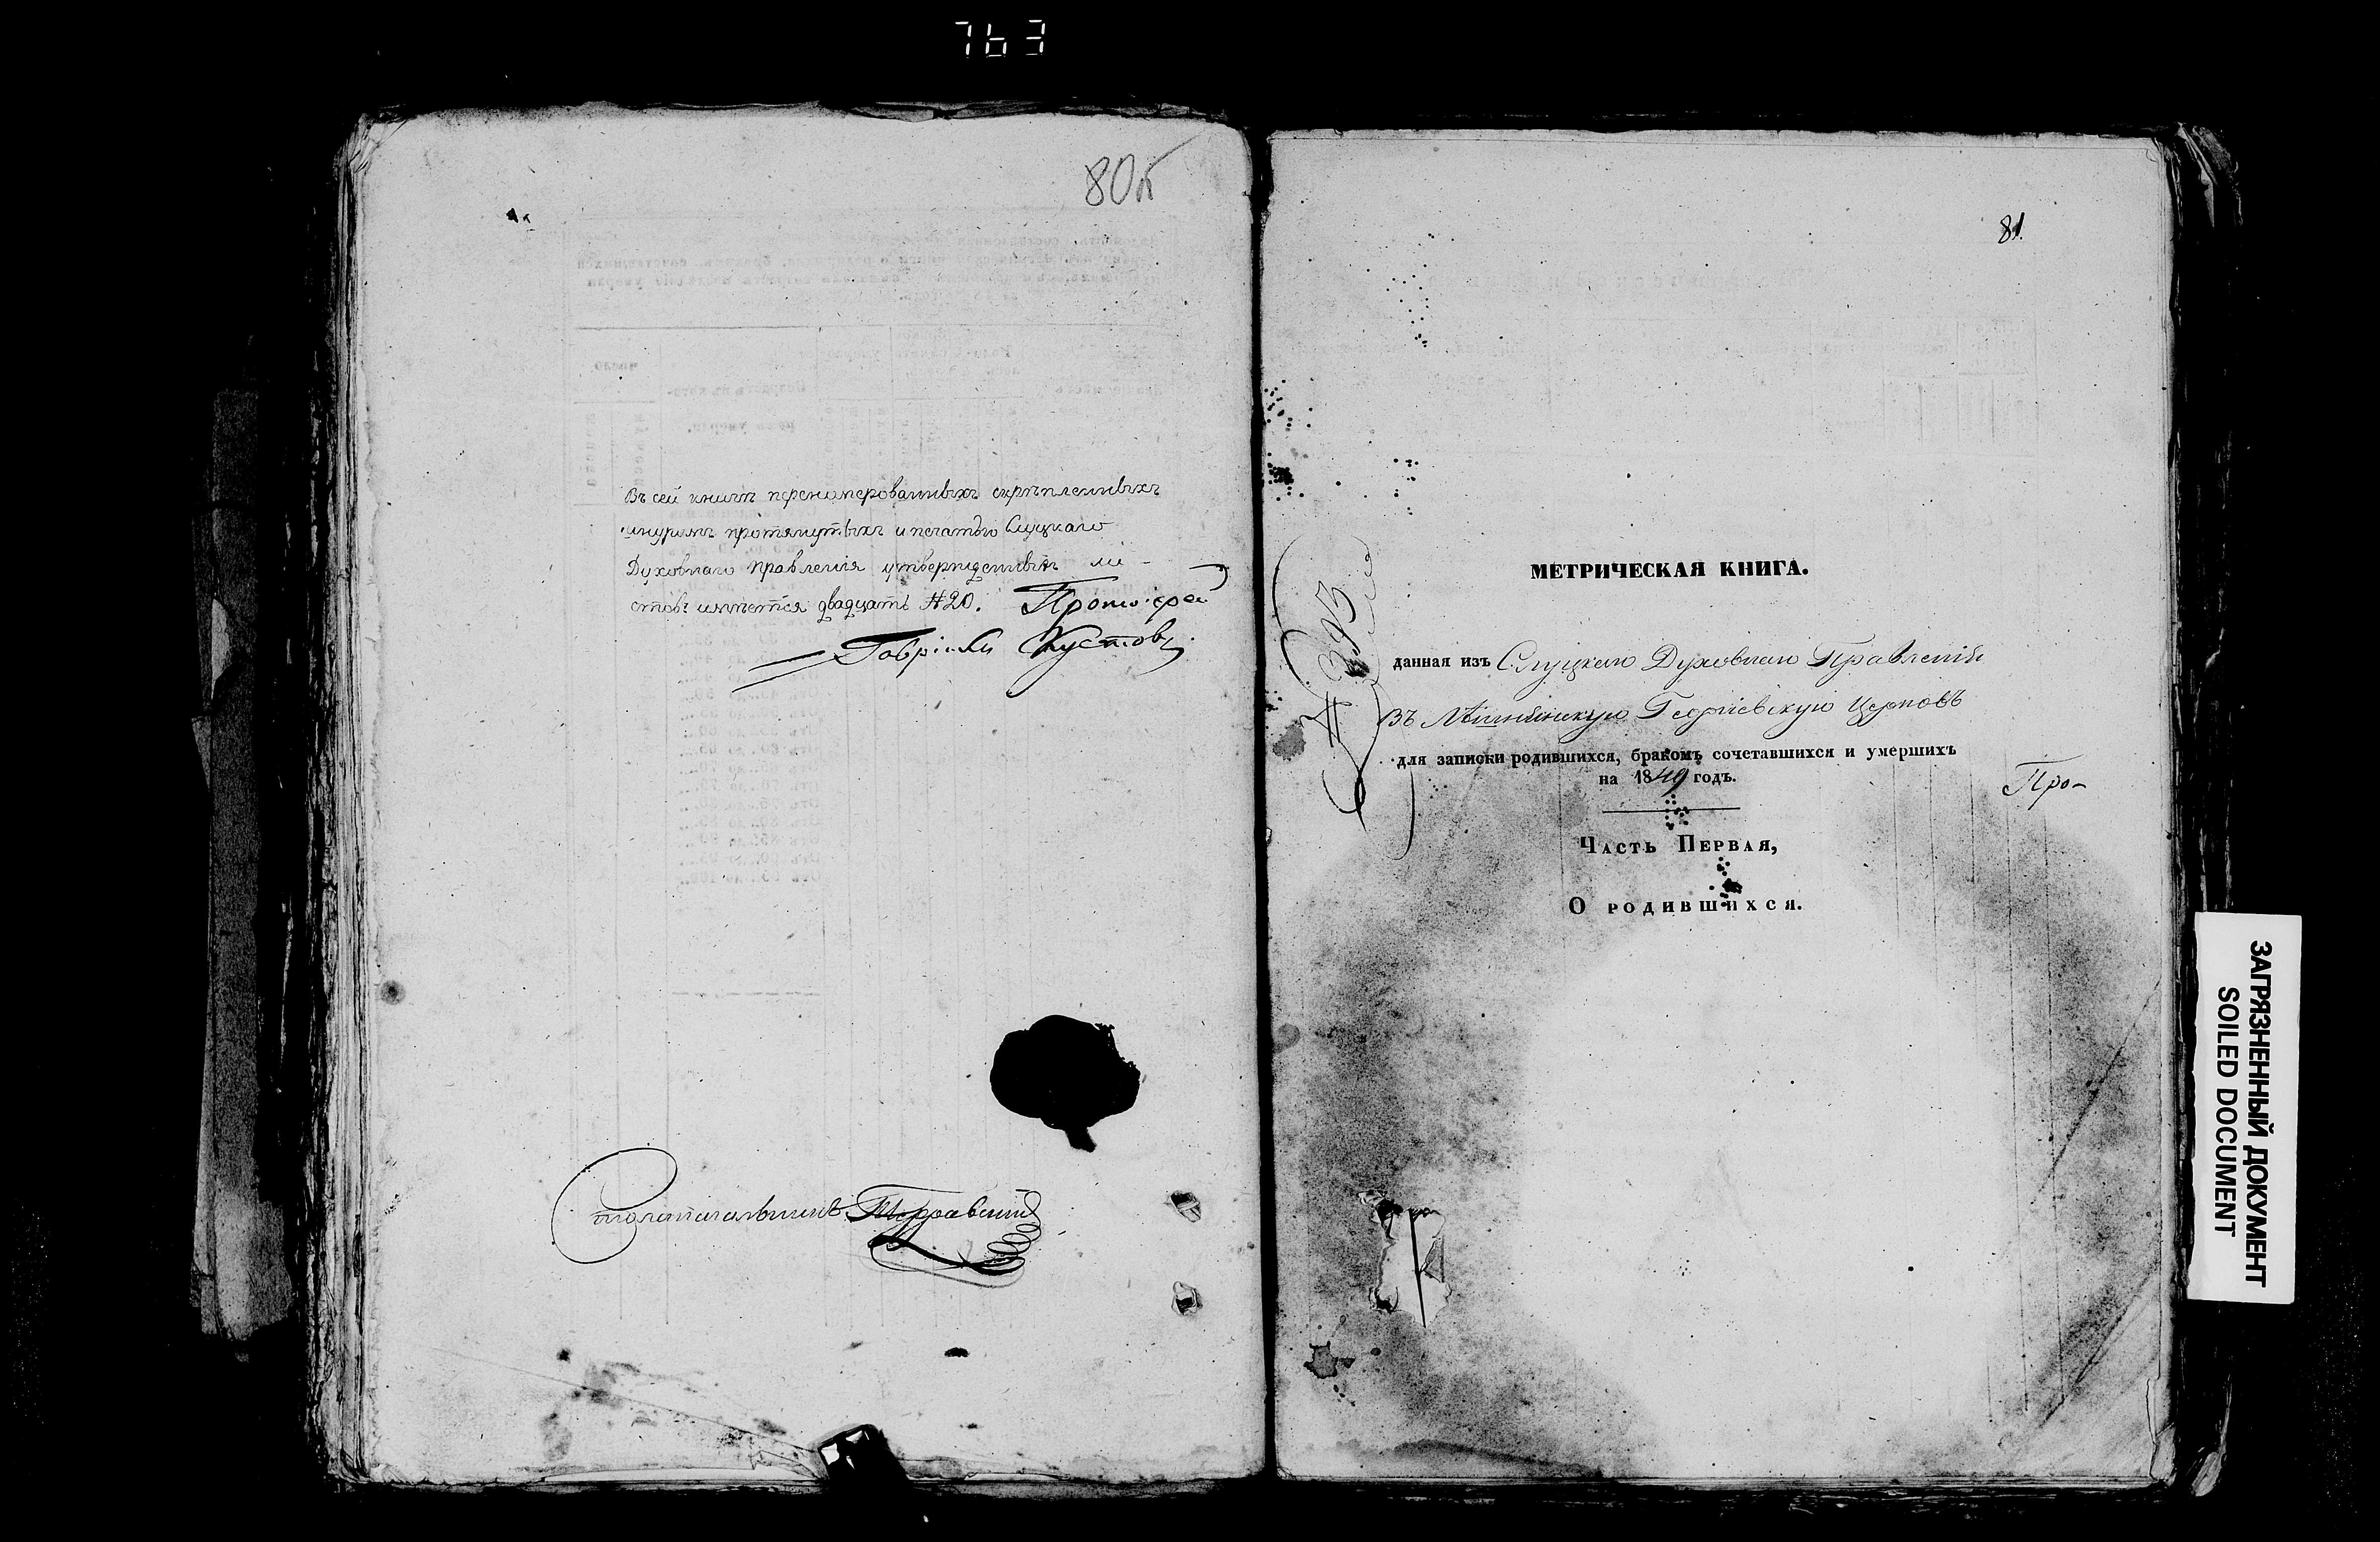 763
80об
Въ сей книгѣ перенумерованныхъ скрѣпленныхъ
шнуромъ протянутыхъ и печатью Слуцкаго
Духовнаго Правленія утвержденныхъ ли-
стовъ имѣется двадцать #20. Протоіерей
Гавріилъ Кустовъ
Столоначальникъ
81.
МЕТРИЧЕСКАЯ КНИГА.
#393
данная изъ Слуцкаго Духовнаго Правленія
Въ Георгіевскую Церковь
для записки родившихся, бракомъ сочетавшихся и умершихъ
на 1849 годъ.
Про-
Часть Первая,
О родившихся.
ЗАГРЯЗНЕННЫЙ ДОКУМЕНТ
SOILED DOCUMENT